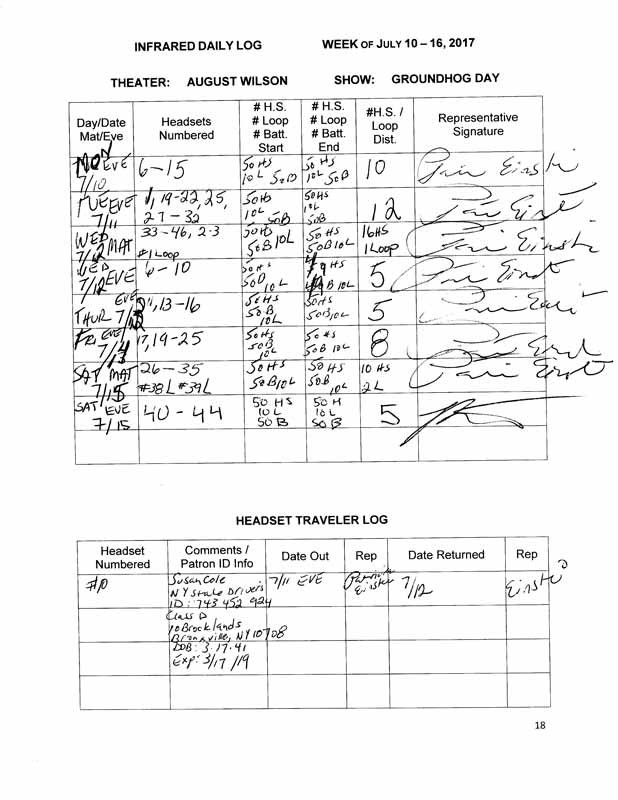 INFRARED DAILY LOG WEEK OF JULY 10 – 16, 2017
THEATER: AUGUST WILSON SHOW: GROUNDHOG DAY
Day/Date Mat/Eve
Headsets Numbered
# H.S. # Loop # Batt. Start
# H.S. # Loop # Batt. End
#H.S. / Loop Dist.
Representative Signature
MON EVE 7/10 6-15 50 HS 10L 50B 50 HS 10L 50B 10
TUE EVE 7/11 19-22, 25, 27-32 50HS 10L 50B 50HS 10L 50B 12
WED MAT 7/12 33-46, 2-3 #1 Loop 50HS 50B 10L 50HS 50B 10L 16HS 1 Loop
WED EVE 7/12 6-10 50HS 50B 10L HS B 10L 5
THUR EVE 13-16 50HS 50B, 10L 50HS 50B, 10L 5
FRI EVE 17, 19-25 50HS 50B 10L 50HS 50B 10L 8
SAT MAT 7/15 26-35 #38L #39L 50HS 50B 10L 50HS 50B 10L 10 HS 2L
SAT EVE 7/15 40-44 50 HS 10L 50B 50 H 10L 50B 5
HEADSET TRAVELER LOG
Headset Numbered
Comments / Patron ID Info
Date Out
Rep
Date Returned
Rep
Susan Cole 7/11 EVE 7/12
NY State Drivers
ID: 743 452 924
Class D
10 Brooklands
Bronxville, NY 10708
DOB: 3.17.41
Exp: 3/17/19
18